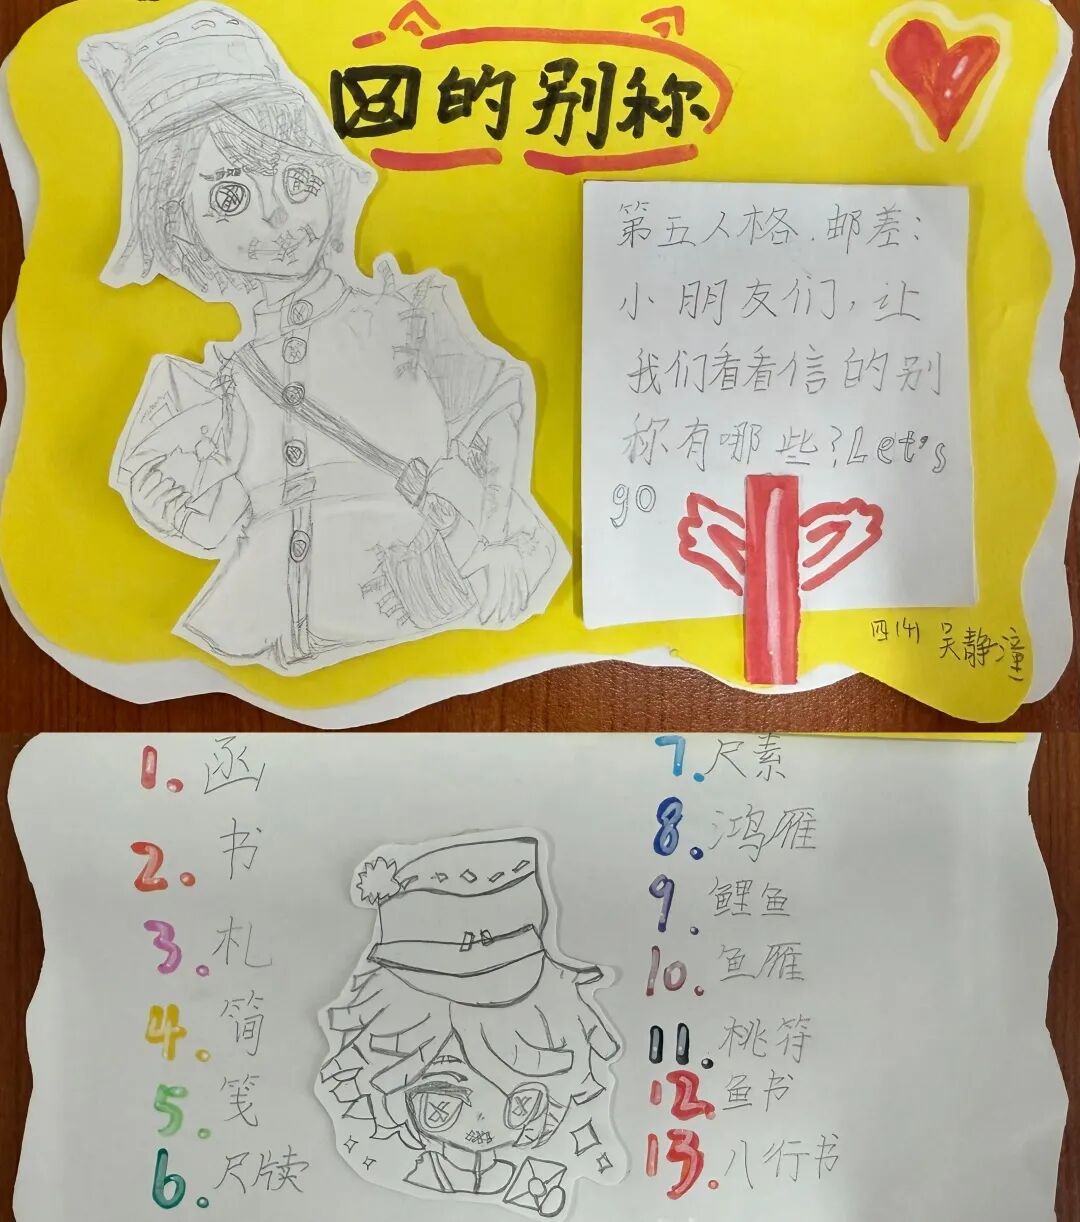 的别称
第五人格.邮差:
小朋友们,让
我们看看信的别
称有哪些?Let's
go
四(4) 吴静潼
1.函
2.书
3.札
4.简
5.笺
6.尺牍
7.尺素
8.鸿雁
9.鲤鱼
10.鱼雁
11.桃符
12.鱼书
13.八行书